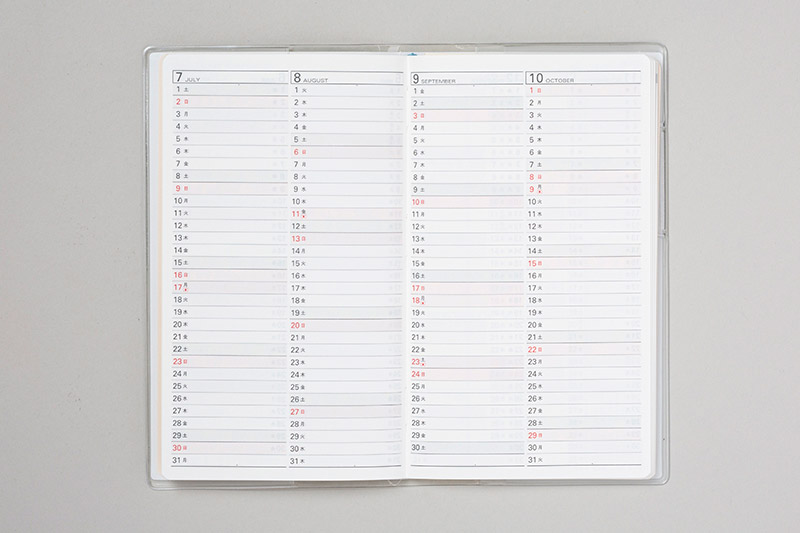 7 JULY
1 土
2 日
3 月
4 火
5 水
6 木
7 金
8 土
9 日
10 月
11 火
12 水
13 木
14 金
15 土
16 日
17 月
18 火
19 水
20 木
21 金
22 土
23 日
24 月
25 火
26 水
27 木
28 金
29 土
30 日
31 月
8 AUGUST
1 火
2 水
3 木
4 金
5 土
6 日
7 月
8 火
9 水
10 木
11 金
12 土
13 日
14 月
15 火
16 水
17 木
18 金
19 土
20 日
21 月
22 火
23 水
24 木
25 金
26 土
27 日
28 月
29 火
30 水
31 木
9 SEPTEMBER
1 金
2 土
3 日
4 月
5 火
6 水
7 木
8 金
9 土
10 日
11 月
12 火
13 水
14 木
15 金
16 土
17 日
18 月
19 火
20 水
21 木
22 金
23 土
24 日
25 月
26 火
27 水
28 木
29 金
30 土
10 OCTOBER
1 日
2 月
3 火
4 水
5 木
6 金
7 土
8 日
9 月
10 火
11 水
12 木
13 金
14 土
15 日
16 月
17 火
18 水
19 木
20 金
21 土
22 日
23 月
24 火
25 水
26 木
27 金
28 土
29 日
30 月
31 火